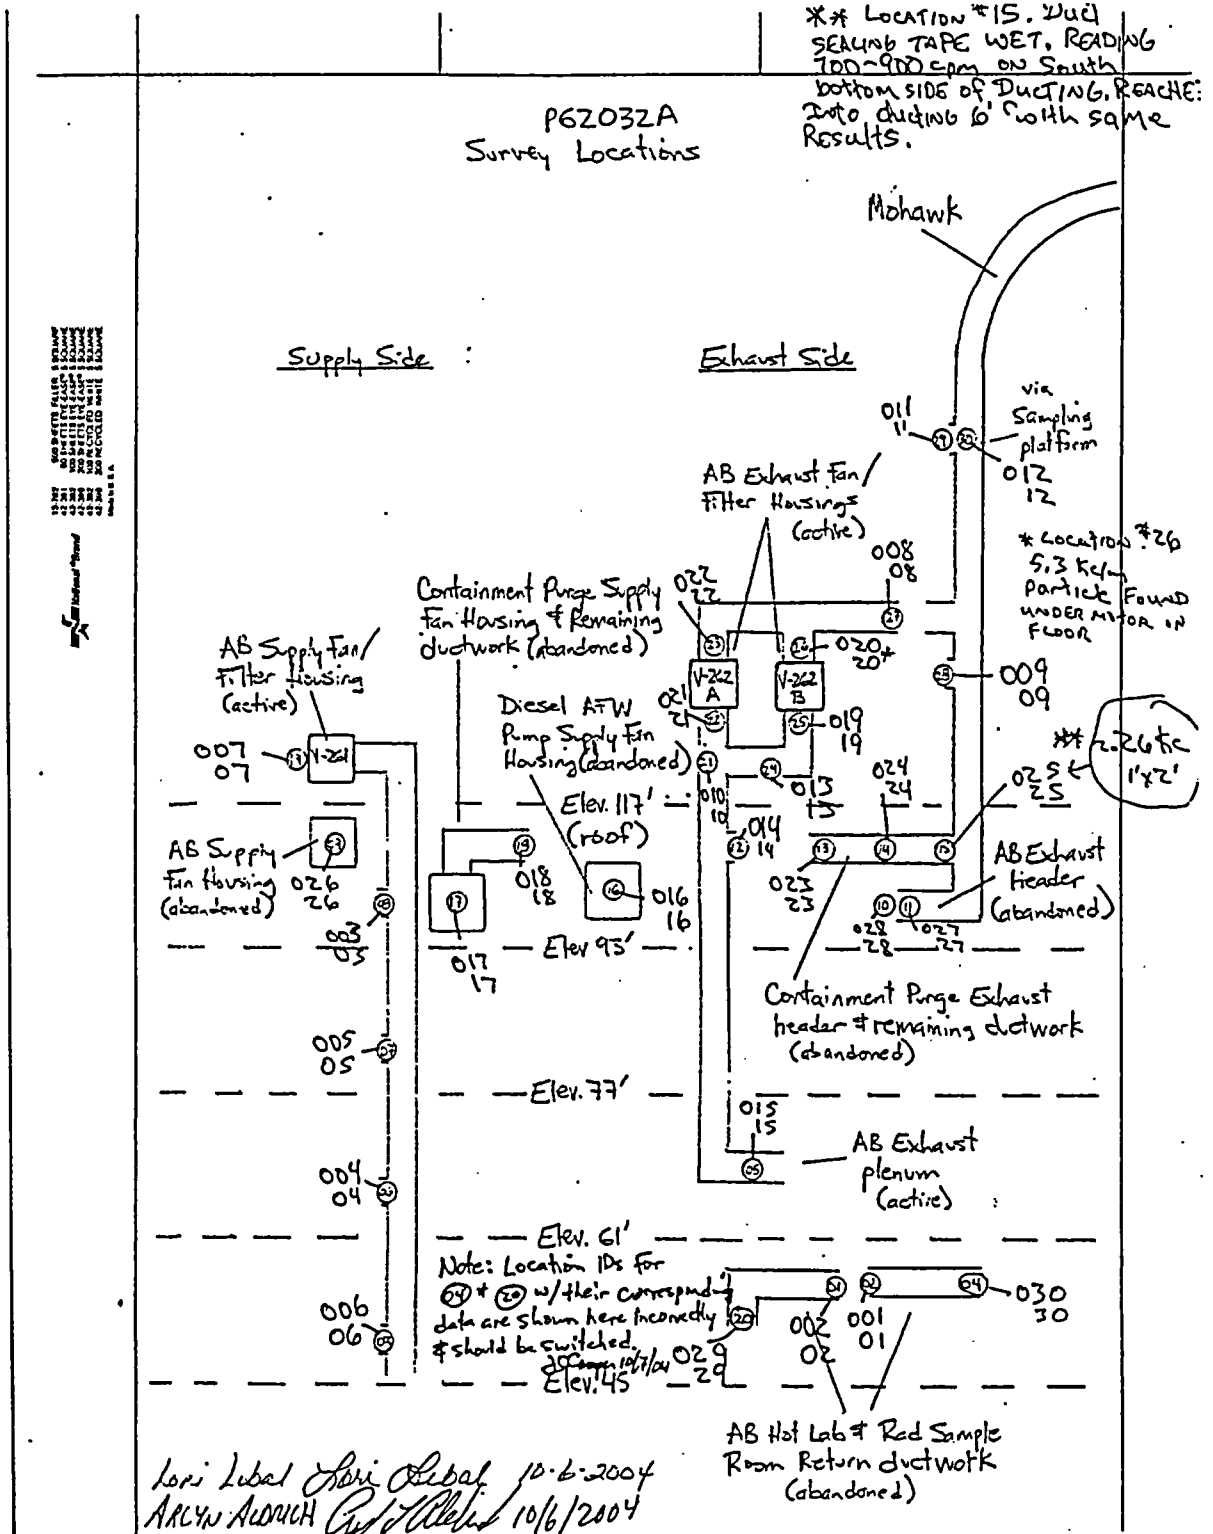 ** LOCATION #15. Duct
SEALING TAPE WET, READING
700-900 cpm ON South
bottom SIDE of DUCTING. REACHE:
Into ducting 6' with same
RESULTS.
P62032A
Survey Locations
Mohawk
Supply Side :
Exhaust Side
via
Sampling
platform
011
11
19
012
12
AB Exhaust Fan/
Filter Housings
(active)
* LOCATION #26
5.3 Kc/m
Particle FOUND
UNDER MOTOR IN
FLOOR
008
08
27
022
22
23
Containment Purge Supply
Fan Housing & Remaining
ductwork (abandoned)
AB Supply Fan/
Filter Housing
(active)
26
020
20*
V-262
A
V-262
B
28
009
09
021
21
22
25
019
19
Diesel AFW
Pump Supply Fan
Housing (abandoned)
007
07
V-261
21
010
10
24
013
13
024
24
025
25
** 2.26 Kc
1'x2'
Elev. 117'
(roof)
014
14
12
13
14
15
023
23
AB Supply
Fan Housing
(abandoned)
026
26
18
018
18
16
016
16
17
017
17
003
03
10
11
028
28
027
27
AB Exhaust
header
(abandoned)
Elev 93'
Containment Purge Exhaust
header & remaining ductwork
(abandoned)
005
05
07
Elev. 77'
015
15
05
AB Exhaust
plenum
(active)
004
04
Elev. 61'
Note: Location IDs for
04 & 20 w/their corresponding
data are shown here incorrectly
& should be switched.
10/7/04
006
06
20
029
29
01
002
02
02
001
01
04
030
30
Elev. 45
AB Hot Lab & Rad Sample
Room Return ductwork
(abandoned)
Lori Lubal Lori Lubal 10-6-2004
ARLYN ALDRICH 10/6/2004
National Brand